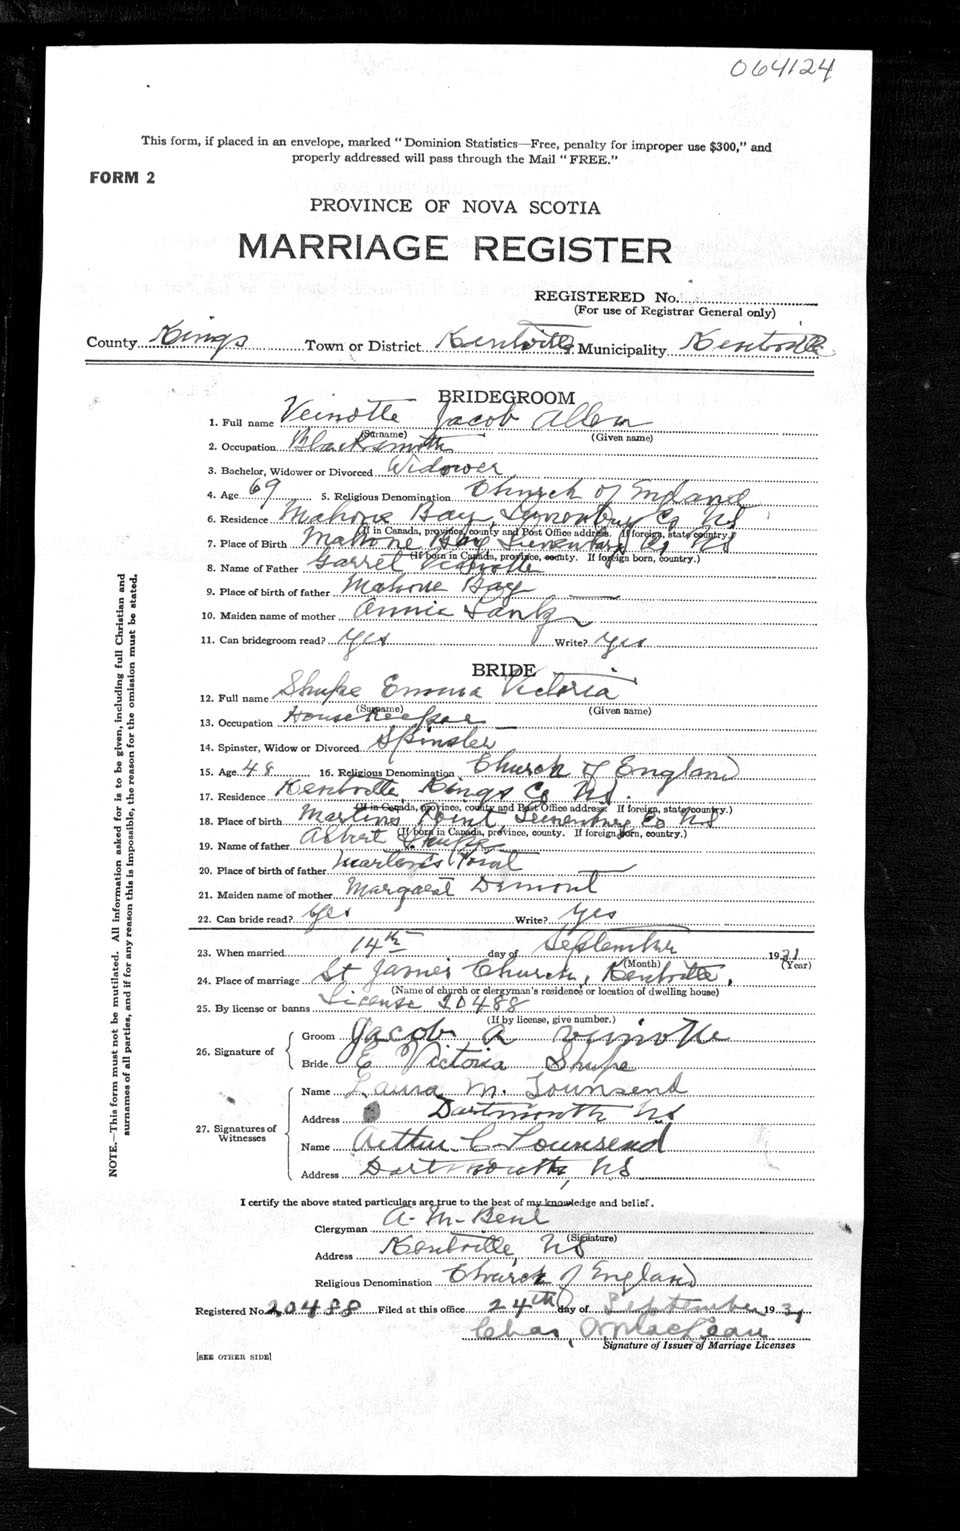 064124
This form, if placed in an envelope, marked "Dominion Statistics—Free, penalty for improper use $300," and
properly addressed will pass through the Mail "FREE."
FORM 2
PROVINCE OF NOVA SCOTIA
MARRIAGE REGISTER
REGISTERED No.
(For use of Registrar General only)
County Kings Town or District Kentville Municipality Kentville
BRIDEGROOM
1. Full name Veinotte Jacob Allen
(Surname) (Given name)
2. Occupation Blacksmith
3. Bachelor, Widower or Divorced Widower
4. Age 69 5. Religious Denomination Church of England
6. Residence Mahone Bay, Lunenburg Co NS
(If in Canada, province, county and Post Office address. If foreign, state country.)
7. Place of Birth Mahone Bay Lunenburg Co NS
(If born in Canada, province, county. If foreign born, country.)
8. Name of Father Garret Veinotte
9. Place of birth of father Mahone Bay
10. Maiden name of mother Annie Lantz
11. Can bridegroom read? Yes Write? Yes
BRIDE
12. Full name Shupe Emma Victoria
(Surname) (Given name)
13. Occupation Housekeeper
14. Spinster, Widow or Divorced Spinster
15. Age 48 16. Religious Denomination Church of England
17. Residence Kentville Kings Co NS.
(If in Canada, province, county and Post Office address. If foreign, state country.)
18. Place of birth Martins Point Lunenburg Co NS
(If born in Canada, province, county. If foreign born, country.)
19. Name of father Albert Shupe
20. Place of birth of father Martin's Point
21. Maiden name of mother Margaret Demont
22. Can bride read? Yes Write? Yes
23. When married 14th day of September 1931
(Month) (Year)
24. Place of marriage St James Church, Kentville,
(Name of church or clergyman's residence or location of dwelling house)
25. By license or banns License 20488
(If by license, give number.)
26. Signature of Groom Jacob A Veinotte
Bride E Victoria Shupe
27. Signatures of Witnesses
Name Laura M. Townsend
Address Dartmouth NS
Name Arthur C Townsend
Address Dartmouth, NS
I certify the above stated particulars are true to the best of my knowledge and belief.
Clergyman A. M. Bent
(Signature)
Address Kentville, NS
Religious Denomination Church of England
Registered No. 20488 Filed at this office 24th day of September 1931
Chas MacLean
Signature of Issuer of Marriage Licenses
[SEE OTHER SIDE]
NOTE.—This form must not be mutilated. All information asked for is to be given, including full Christian and
surnames of all parties, and if for any reason this is impossible, the reason for the omission must be stated.